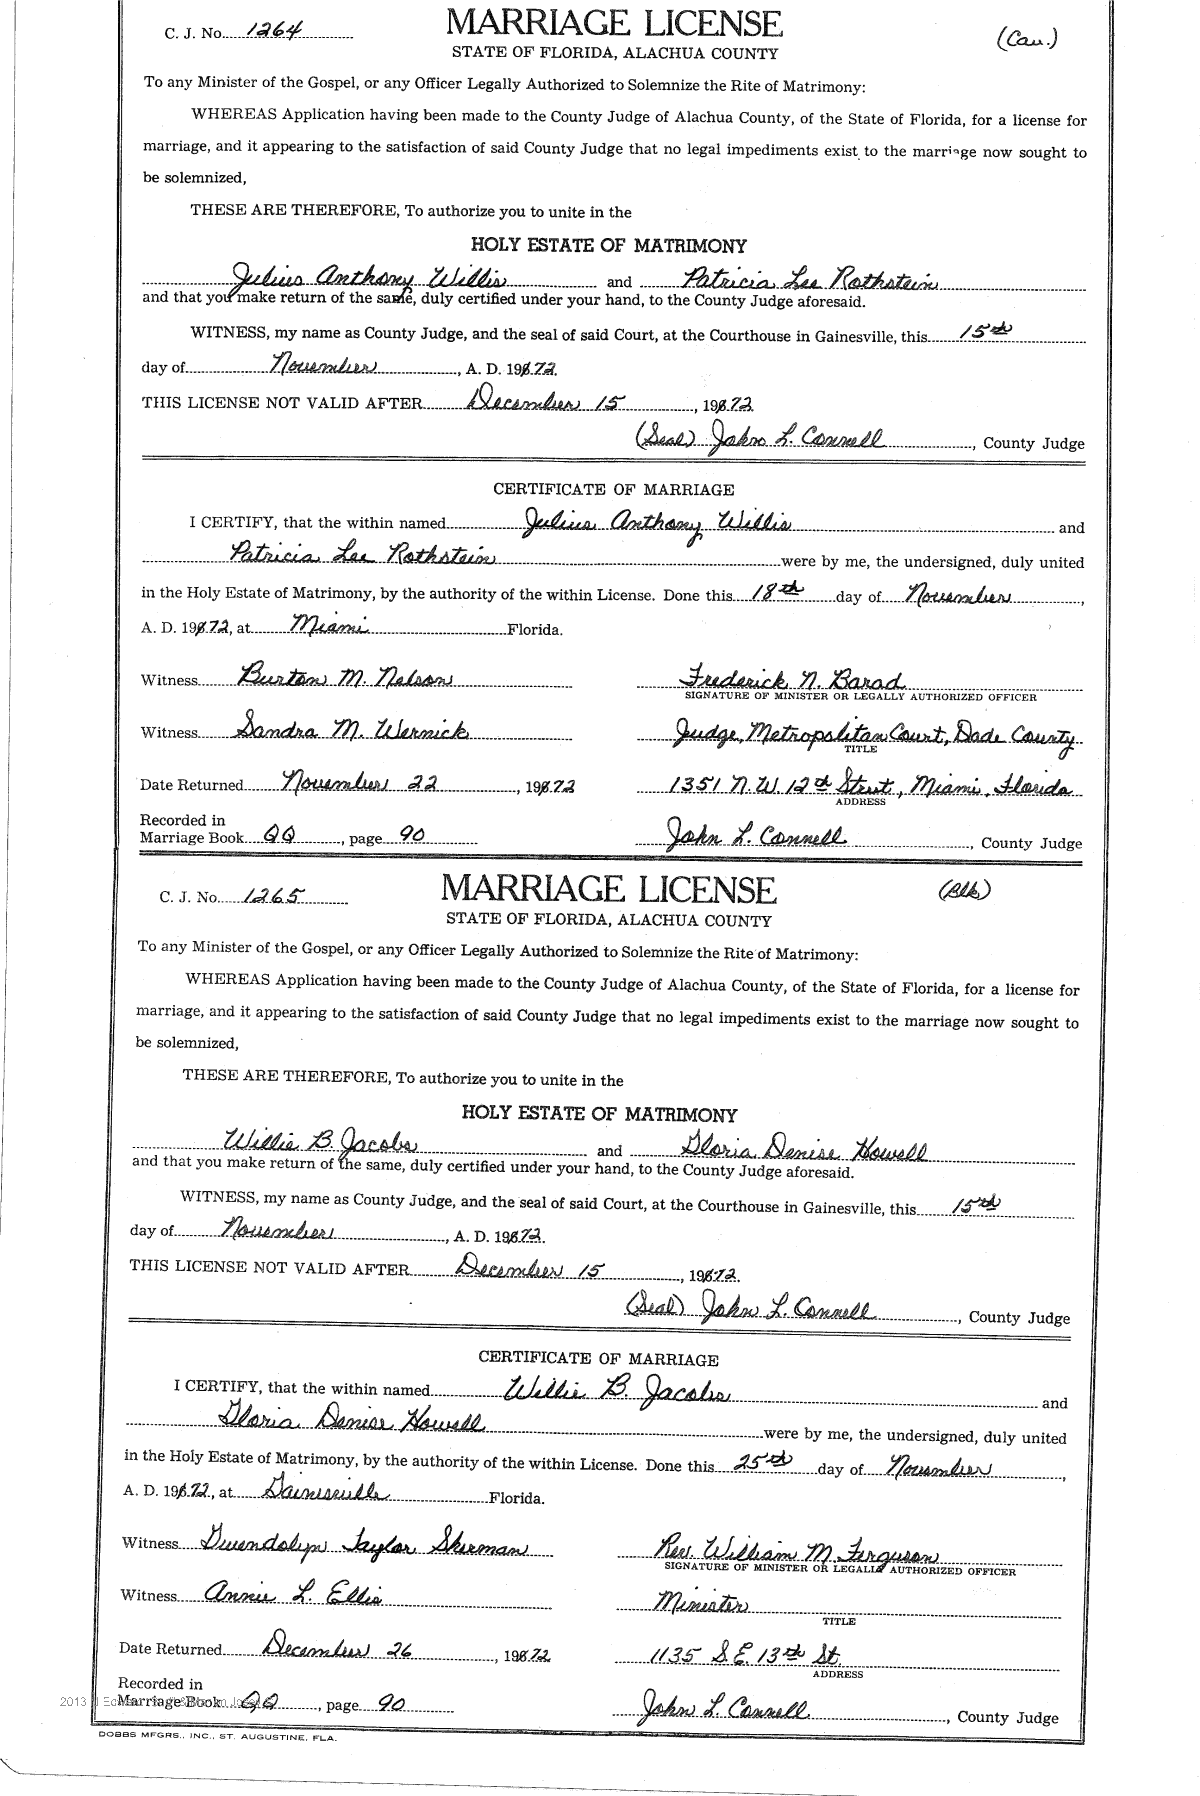 C. J. No. 1264 MARRIAGE LICENSE (Cau.)
STATE OF FLORIDA, ALACHUA COUNTY
To any Minister of the Gospel, or any Officer Legally Authorized to Solemnize the Rite of Matrimony:
WHEREAS Application having been made to the County Judge of Alachua County, of the State of Florida, for a license for
marriage, and it appearing to the satisfaction of said County Judge that no legal impediments exist to the marriage now sought to
be solemnized,
THESE ARE THEREFORE, To authorize you to unite in the
HOLY ESTATE OF MATRIMONY
Julius Anthony Willis and Patricia Lee Rothstein
and that you make return of the same, duly certified under your hand, to the County Judge aforesaid.
WITNESS, my name as County Judge, and the seal of said Court, at the Courthouse in Gainesville, this 15th
day of November, A. D. 1972.
THIS LICENSE NOT VALID AFTER December 15, 1972
(Seal) John L. Connell, County Judge
CERTIFICATE OF MARRIAGE
I CERTIFY, that the within named Julius Anthony Willis and
Patricia Lee Rothstein were by me, the undersigned, duly united
in the Holy Estate of Matrimony, by the authority of the within License. Done this 18th day of November,
A. D. 1972, at Miami Florida.
Witness Burton M. Nelson Frederick N. Barad
SIGNATURE OF MINISTER OR LEGALLY AUTHORIZED OFFICER
Witness Sandra M. Wernick Judge, Metropolitan Court, Dade County
TITLE
Date Returned November 22, 1972 1351 N.W. 12th Street, Miami, Florida
ADDRESS
Recorded in
Marriage Book QQ, page 90 John L. Connell, County Judge
C. J. No. 1265 MARRIAGE LICENSE (Blk)
STATE OF FLORIDA, ALACHUA COUNTY
To any Minister of the Gospel, or any Officer Legally Authorized to Solemnize the Rite of Matrimony:
WHEREAS Application having been made to the County Judge of Alachua County, of the State of Florida, for a license for
marriage, and it appearing to the satisfaction of said County Judge that no legal impediments exist to the marriage now sought to
be solemnized,
THESE ARE THEREFORE, To authorize you to unite in the
HOLY ESTATE OF MATRIMONY
Willie B. Jacobs and Gloria Denise Howell
and that you make return of the same, duly certified under your hand, to the County Judge aforesaid.
WITNESS, my name as County Judge, and the seal of said Court, at the Courthouse in Gainesville, this 15th
day of November, A. D. 1972.
THIS LICENSE NOT VALID AFTER December 15, 1972.
(Seal) John L. Connell, County Judge
CERTIFICATE OF MARRIAGE
I CERTIFY, that the within named Willie B. Jacobs and
Gloria Denise Howell were by me, the undersigned, duly united
in the Holy Estate of Matrimony, by the authority of the within License. Done this 25th day of November,
A. D. 1972, at Gainesville Florida.
Witness Gwendolyn Taylor Sherman Rev. William M. Ferguson
SIGNATURE OF MINISTER OR LEGALLY AUTHORIZED OFFICER
Witness Annie L. Ellis Minister
TITLE
Date Returned December 26, 1972 1135 S.E. 13th St.
ADDRESS
Recorded in
2013
Marriage Book QQ, page 90 John L. Connell, County Judge
DOBBS MFGRS., INC., ST. AUGUSTINE, FLA.